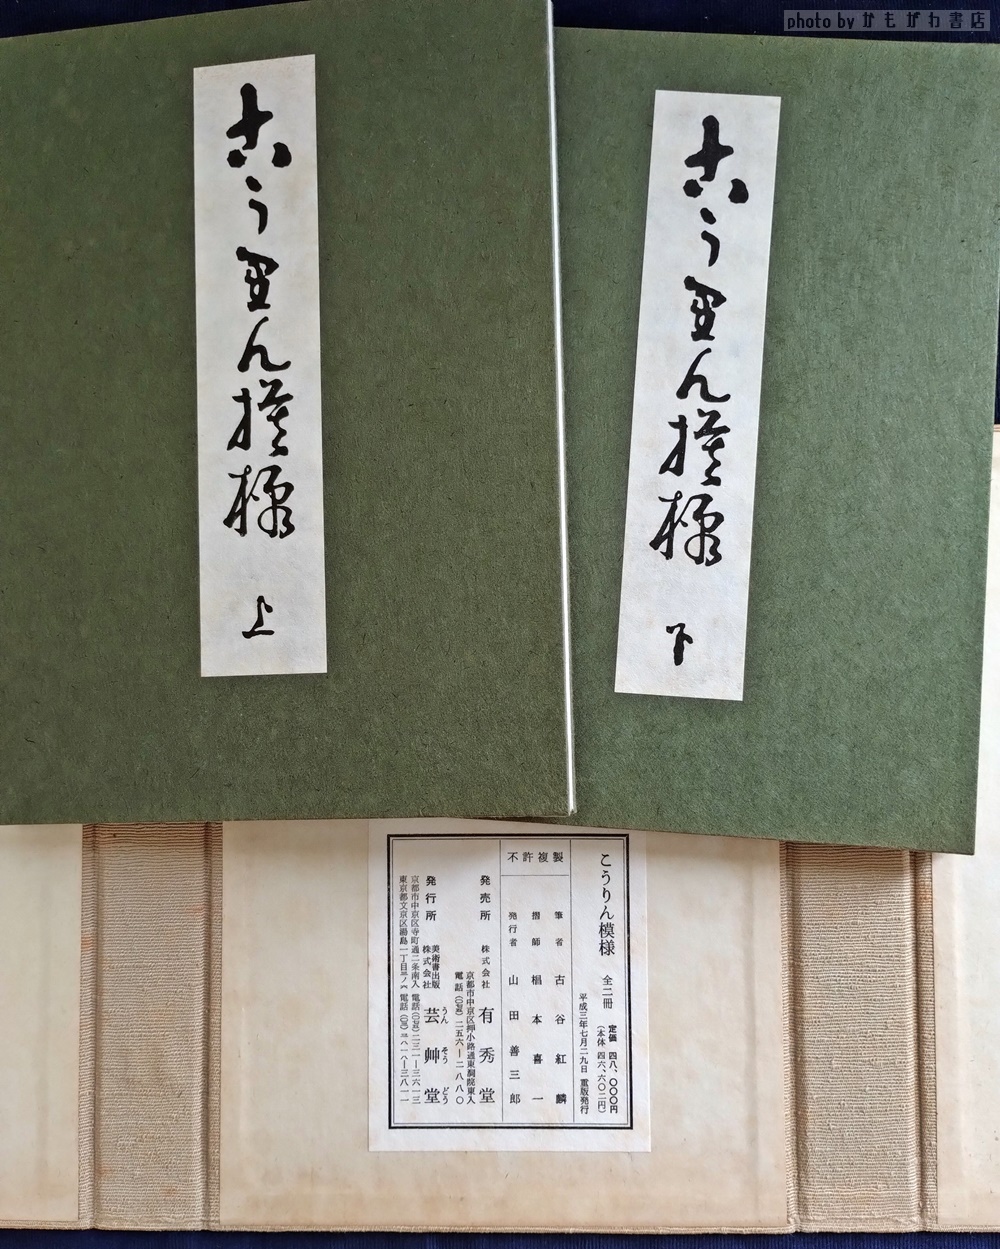 photo by かもがわ書店
こうりん模様 上
こうりん模様 下
こうりん模様 全二冊
定価 四八、〇〇〇円
(本体 四六、六〇二円)
平成三年七月二九日 重版発行
不許複製
筆者 古谷紅麟
摺師 椙本喜一
発行者 山田善三郎
発売所 株式会社 有秀堂
京都市中京区押小路通東洞院東入
電話(〇七五)二五六―二八八〇
発行所 美術書出版 株式会社 芸艸堂
うん そう どう
京都市中京区寺町通二条南入 電話(〇七五)二三一―三六一三
東京都文京区湯島一丁目三ノ六 電話(〇三)三八一八―三八一一